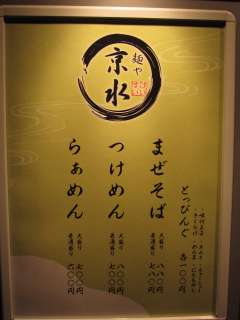 麺や
京水
とっぴんぐ
各一〇〇円
まぜそば
大盛り 八〇〇円
普通盛り 七〇〇円
つけめん
大盛り 八〇〇円
普通盛り 七〇〇円
らぁめん
大盛り 七〇〇円
普通盛り 六〇〇円